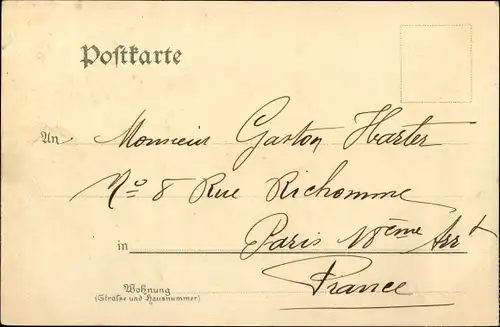 Postkarte
An Monsieur Gaston Harter
No 8 Rue Richomme
in Paris 18ème Arrt
France
Wohnung
(Straße und Hausnummer)